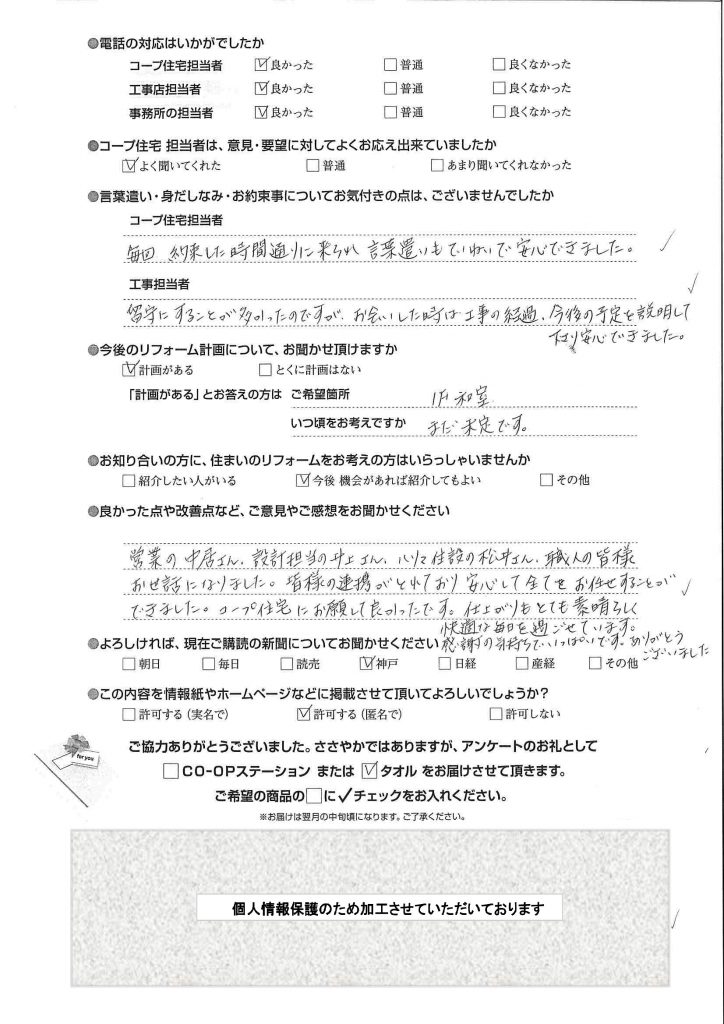 ●電話の対応はいかがでしたか
コープ住宅担当者 ☑良かった □普通 □良くなかった
工事店担当者 ☑良かった □普通 □良くなかった
事務所の担当者 ☑良かった □普通 □良くなかった
●コープ住宅 担当者は、意見・要望に対してよくお応え出来ていましたか
☑よく聞いてくれた □普通 □あまり聞いてくれなかった
●言葉遣い・身だしなみ・お約束事についてお気付きの点は、ございませんでしたか
コープ住宅担当者
毎回 約束した時間通りに来られ 言葉遣いもていねいで安心できました。
工事担当者
留守にすることが多かったのですが、お会いした時は工事の経過、今後の予定を説明して
安心できました。
●今後のリフォーム計画について、お聞かせ頂けますか
☑計画がある □とくに計画はない
「計画がある」とお答えの方は ご希望箇所 1F 和室
いつ頃をお考えですか まだ未定です。
●お知り合いの方に、住まいのリフォームをお考えの方はいらっしゃいませんか
□紹介したい人がいる ☑今後 機会があれば紹介してもよい □その他
●良かった点や改善点など、ご意見やご感想をお聞かせください
営業の中居さん、設計担当の井上さん、ハリマ住設の松井さん、職人の皆様
お世話になりました。皆様の連携がとれており安心して全てをお任せすることが
できました。コープ住宅にお願して良かったです。仕上がりもとても素晴らしく
快適な毎日を過ごせています。
●よろしければ、現在ご購読の新聞についてお聞かせください 感謝の気持ちでいっぱいです。ありがとう
ございました
□朝日 □毎日 □読売 ☑神戸 □日経 □産経 □その他
●この内容を情報紙やホームページなどに掲載させて頂いてよろしいでしょうか?
□許可する(実名で) ☑許可する(匿名で) □許可しない
for you
ご協力ありがとうございました。ささやかではありますが、アンケートのお礼として
□CO-OPステーション または ☑タオル をお届けさせて頂きます。
ご希望の商品の□に✓チェックをお入れください。
※お届けは翌月の中旬頃になります。ご了承ください。
個人情報保護のため加工させていただいております